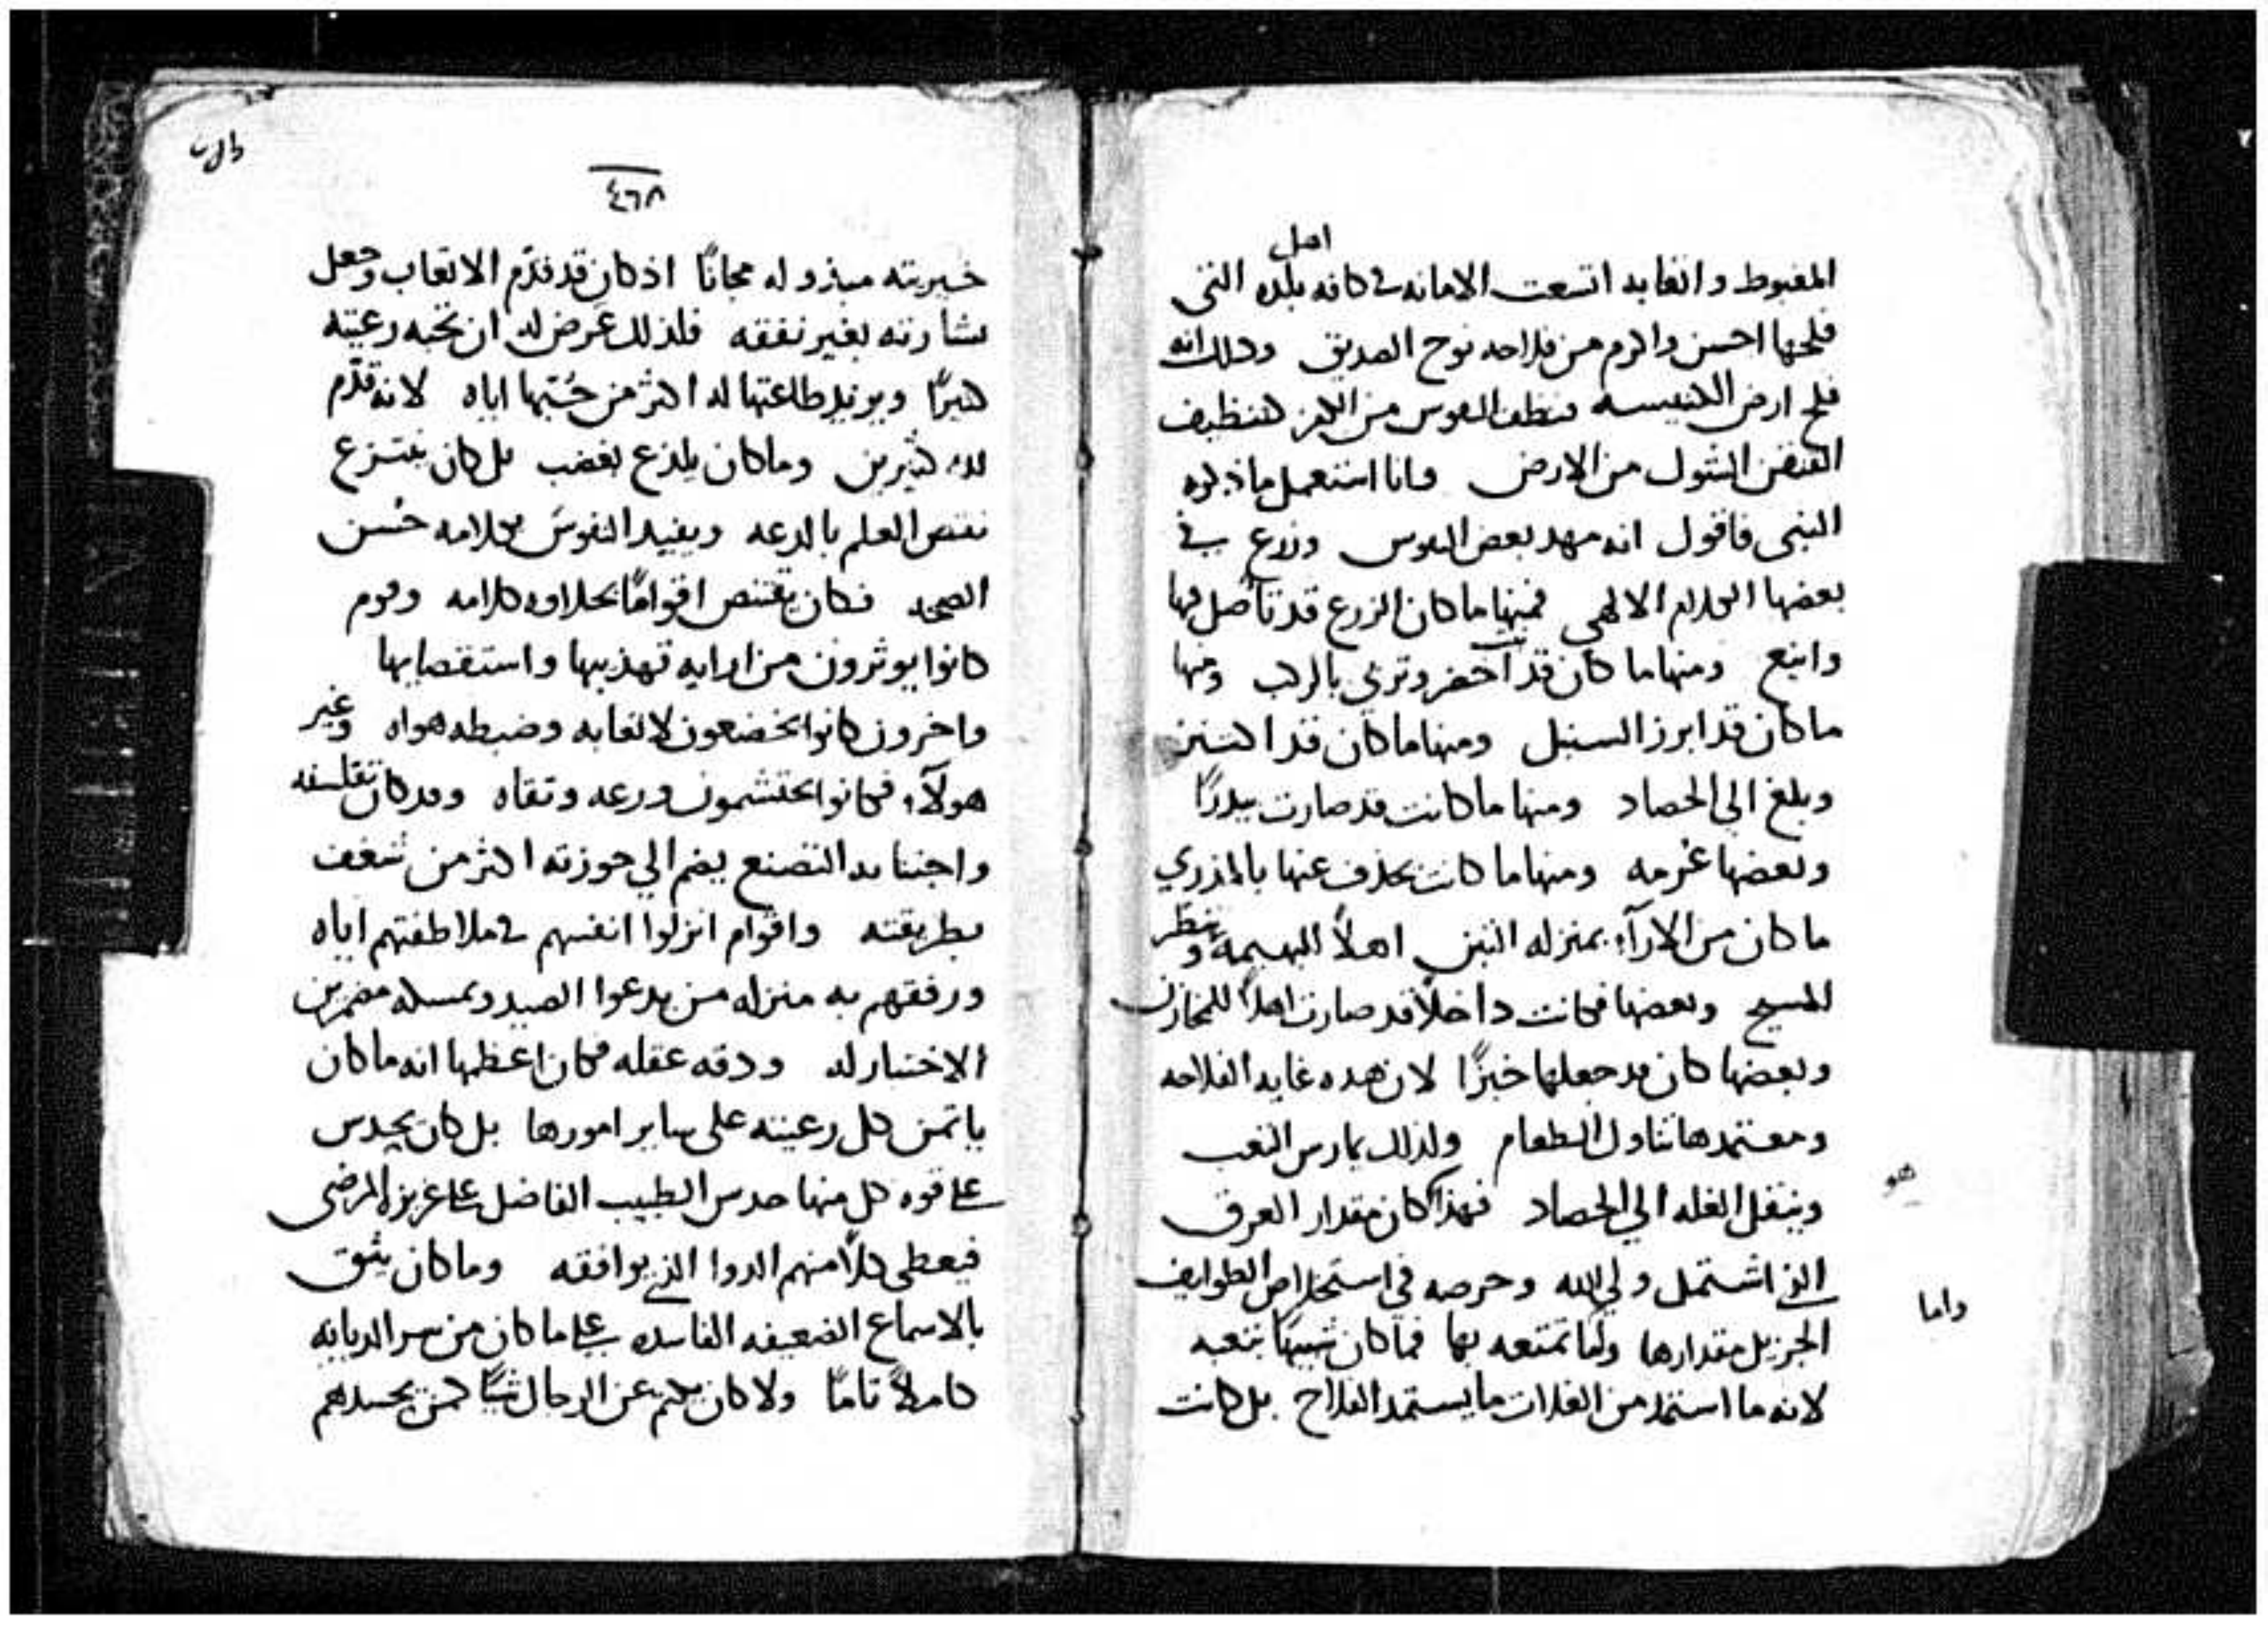 اهل
المغبوط واتعابه اتسعت الامانه في كافه بلده التي
فلحها احسن واكرم من فلاحه نوح الصديق وذلك انه
فلح ارض الكنيسه منظف النفوس من الكفر كتنظيف
الشول من الارض وانا استعمل ما ذكره
النبي فاقول انه مهد بعض النفوس وزرع في
بعضها الكلام الالهي فمنها ما كان الزرع قد تأصل فيها
واينع ومنها ما كان قد اخضر وتربي ومنها
ما كان قد ابرز السنبل ومنها ما كان قد اكتنز
وبلغ الي الحصاد ومنها ما كانت قد صارت بيدرًا
وبعضها عُرمه ومنها ما كانت يحذف عنها بالمذري
ما كان من الارآء بمنزله التبن اهلًا البهيمة وينظر
المسيح وبعضها فكانت داخلًا قد صارت اهلًا للمخازن
وبعضها كان قد جعلها خبزًا لان هذه غايه الفلاحه
ومعتمدها تناول الطعام ولذلك يمارس التعب
وينقل الغله الي الحصاد فهذا كان مقدار العرق
هو
الذي اشتمل ولي الله وحرصه في استخلاص الطوايف
الجزيل مقدارها ولما تمتعه بها فما كان شبيهًا بتعبه
واما
لانه ما استمد من الغلات ما يستمد الفلاح بل كانت
٤٦٨
خيريته مبذوله مجانًا اذ كان قد قدّم الاتعاب وجعل
بشارته بغير نفقه فلذلك عرض له ان تحبه رعيته
كثيرًا ويويد طاعتها له اكثر من حُبّها اياه لانه قدّم
لله كثيرين وما كان يلذع بغضب بل كان ينتزع
نقص العلم بالدعه ويفيد النفوس بكلامه حُسن
الصحه فكان يقتنص اقوامًا بحلاوه كلامه وقوم
كانوا يوثرون من ارايه تهذيبها واستقصايها
واخرون كانوا يخضعون لاتعابه وضبطه هواه وغير
هولآء فكانوا يحتشمون ورعه وتقاه وقد كان تفلسفه
واجتنابه التصنع يضم الي حوزته اكثر من شغف
بطريقته واقوام انزلوا انفسهم في ملاطفتهم اياه
ورفقهم به منزله من يدعوا الصيد
الاختبار له ودقه عقله فكان اعظمها انه ما كان
ياتمن كل رعيته على ساير امورها بل كان يحدس
على قوه كل منها حدس الطبيب الفاضل على غريزه المرضى
فيعطي كلًا منهم الدوا الذي يوافقه وما كان يثق
بالاسماع الضعيفه الفاسده على ما كان من سر الديانه
كاملًا تامًا ولا كان يكتم عن الرجال شيًا كمن يحسدهم